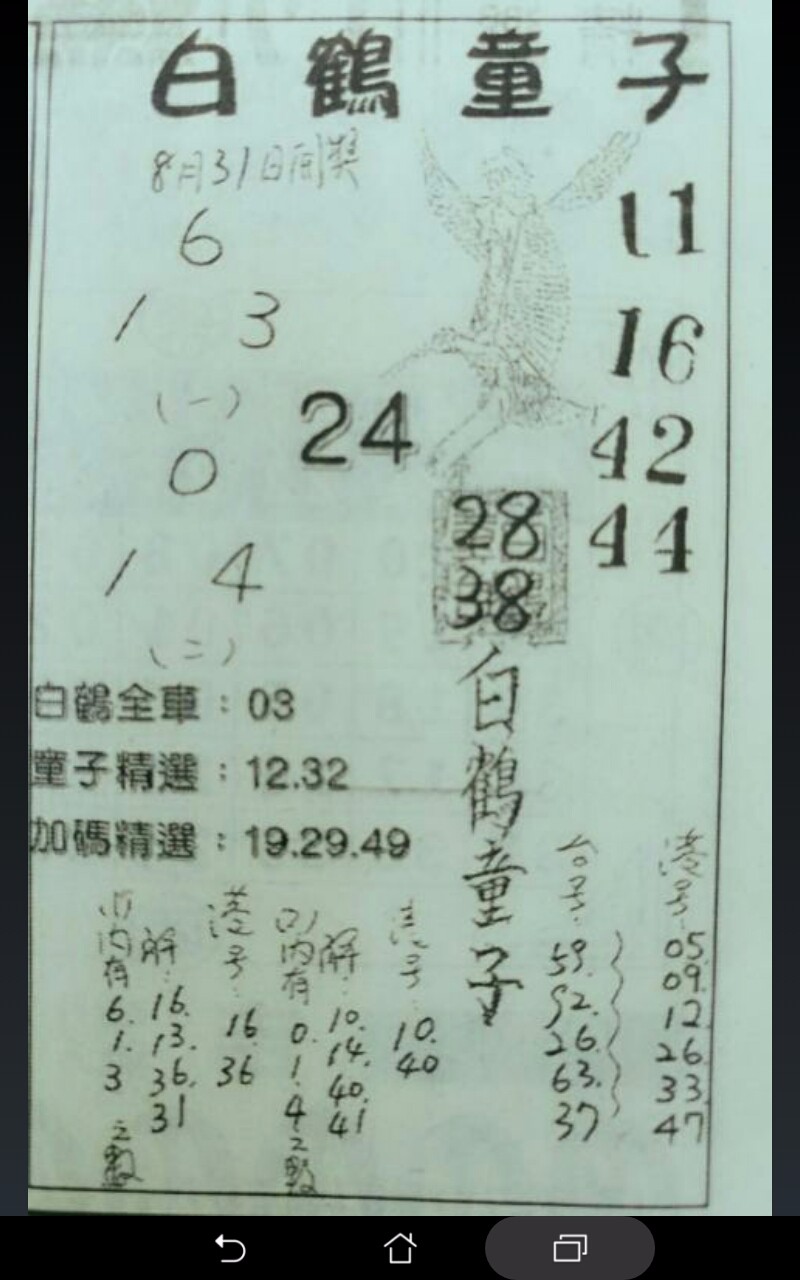 白鶴童子
8月31日開獎
6
1 3
(一)
0
1 4
(二)
24
11
16
42
44
28
38
白鶴童子
白鶴全車：03
童子精選：12.32
加碼精選：19.29.49
(1)內有
6.
1.
3
之數
解：
16.
13.
36.
31
港号：
16
36
(2)內有
0.
1.
4
之數
解：
10.
14.
40.
41
港号：
10.
40
台号：
59.
92.
26.
63.
37
港号：
05.
09.
12.
26
33.
47